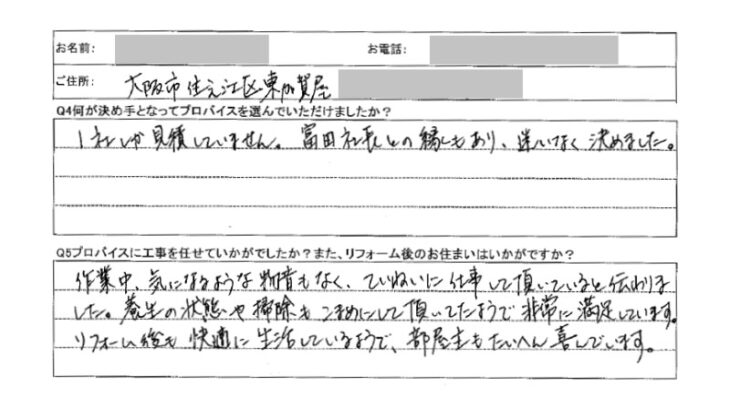 お名前:
お電話:
ご住所: 大阪市住之江区東加賀屋
Q4何が決め手となってプロバイスを選んでいただけましたか?
1社しか見積していません。富田社長との縁もあり、迷いなく決めました。
Q5プロバイスに工事を任せていかがでしたか?また、リフォーム後のお住まいはいかがですか?
作業中、気になるような物音もなく、ていねいに仕事して頂いていると伝わりま
した。養生の状態や掃除もこまめにして頂いてたようで非常に満足しています。
リフォーム後も快適に生活しているようで、部屋主もたいへん喜んでいます。